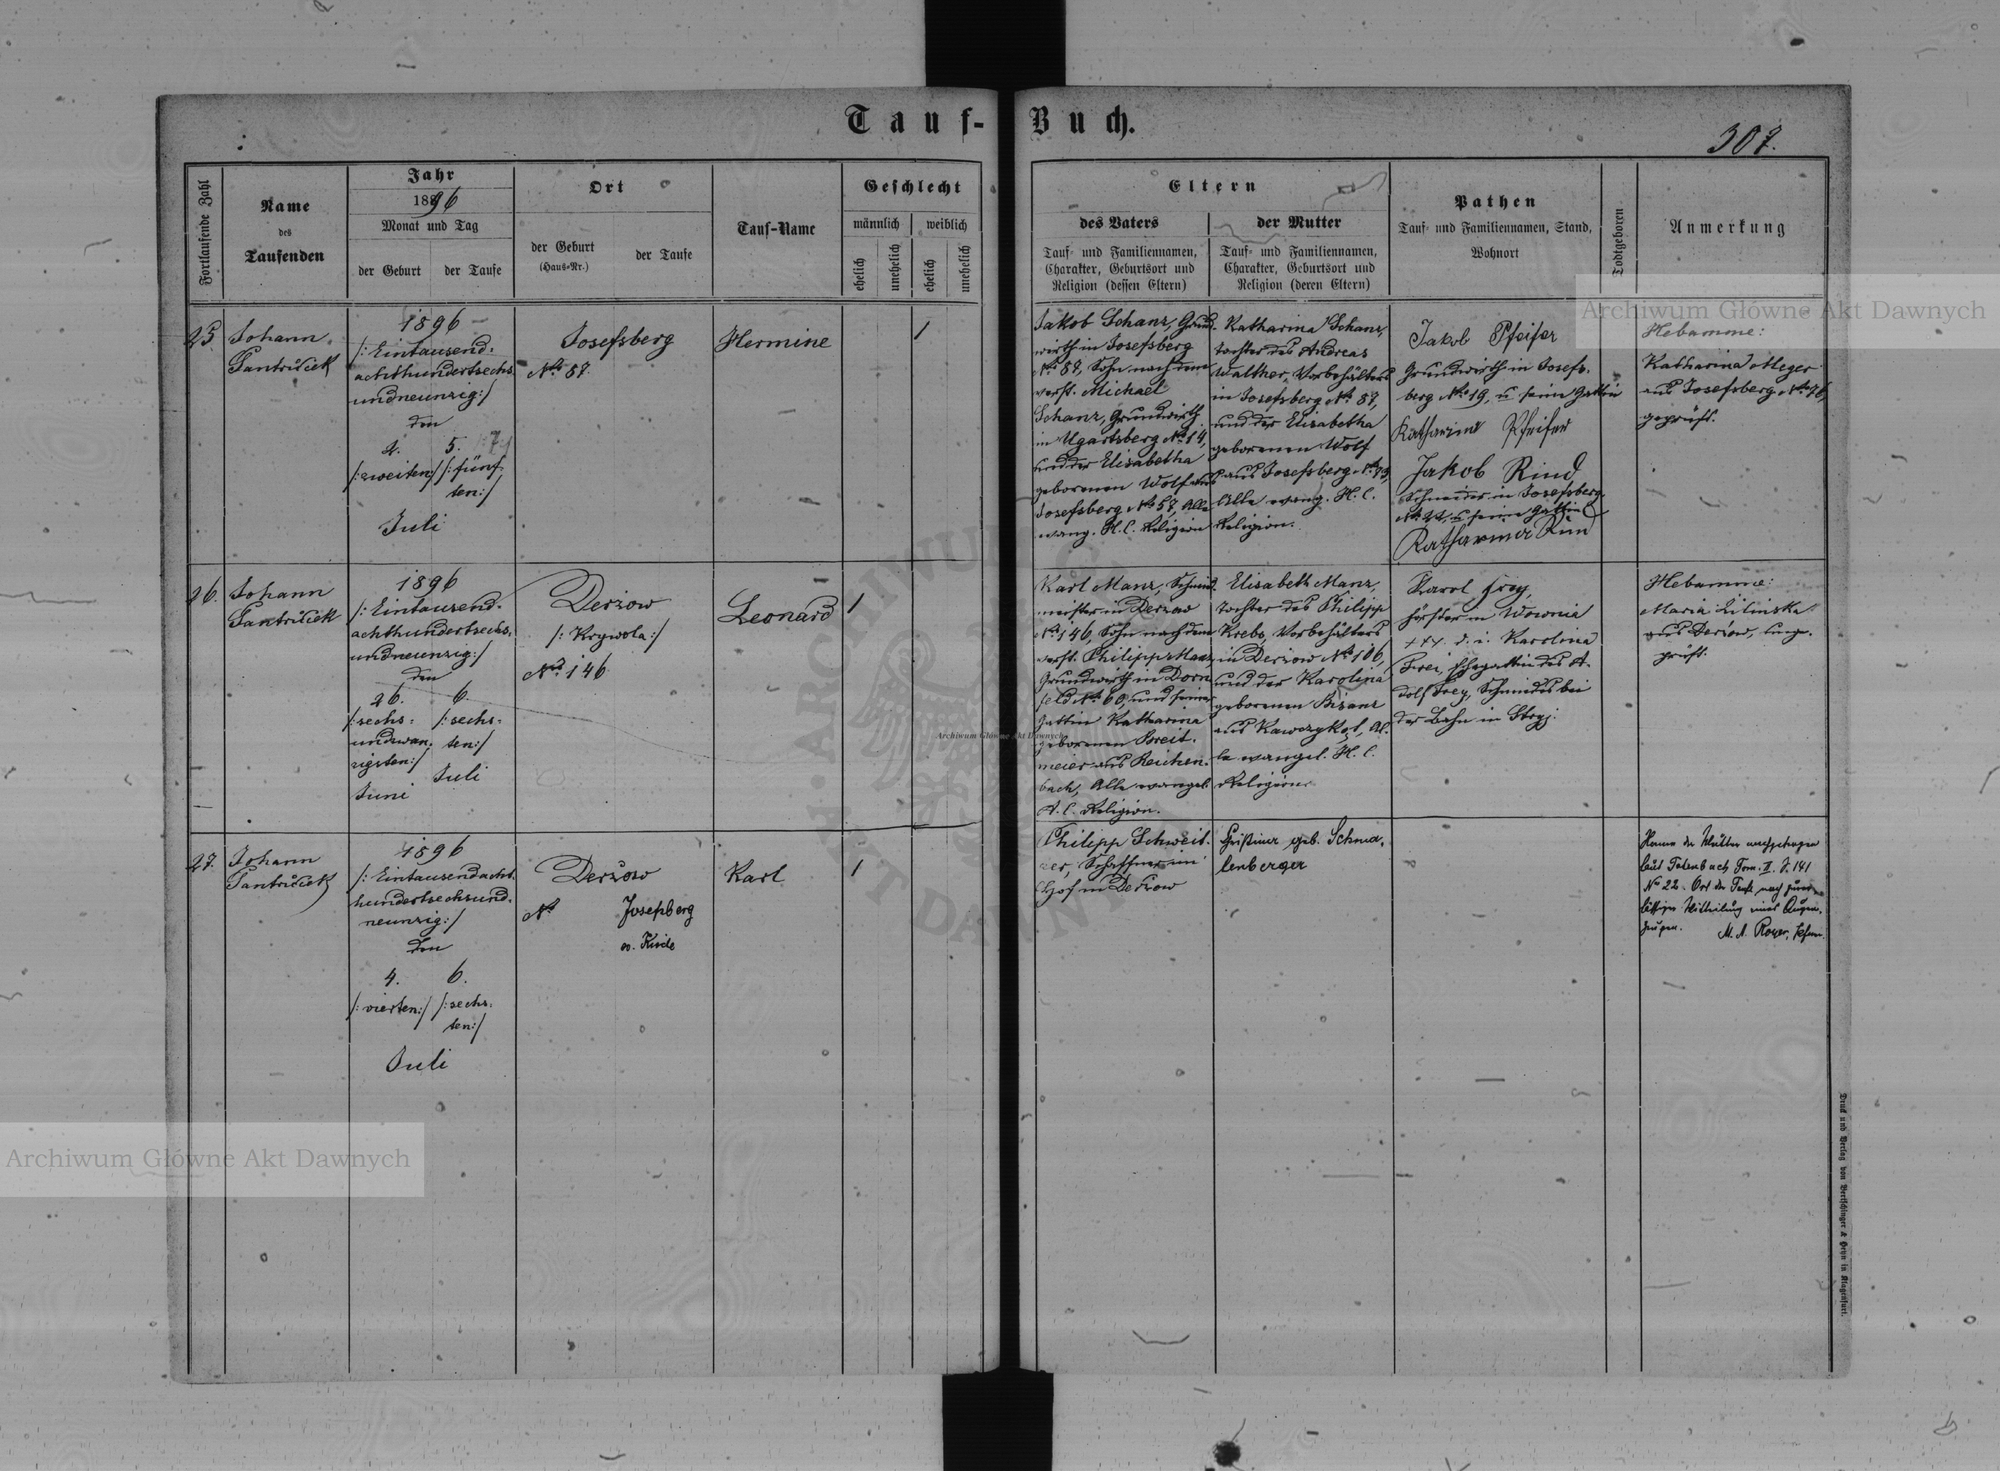 Tauf-Buch.
307.
Fortlaufende Zahl
Name
des
Taufenden
Jahr
1896
Monat und Tag
der Geburt
der Taufe
Ort
der Geburt
(Haus-Nr.)
der Taufe
Tauf-Name
Geschlecht
männlich
weiblich
ehelich
unehelich
ehelich
unehelich
Eltern
des Vaters
Tauf- und Familiennamen,
Charakter, Geburtsort und
Religion (dessen Eltern)
der Mutter
Tauf- und Familiennamen,
Charakter, Geburtsort und
Religion (deren Eltern)
Pathen
Tauf- und Familiennamen, Stand,
Wohnort
Todtgeboren
Anmerkung
25
Johann
1896
/: Eintausend-
achthundertsechs-
undneunzig :/
den
4. 5.
/:zweiten:/ /:fünf-
ten:/
Juli
Josefsberg
No 87
Hermine
1
Jakob Schanz, Grund-
wirth in Josefsberg
No 87, Sohn nach dem
verst. Michael
Schanz, Grundwirth
in Ugartsberg No 14,
und der Elisabetha
geborenen Wolf aus
Josefsberg No 57, Alle
evang. H. C. Religion
Katharina Schanz,
tochter des Andreas
Walther, Vorbehälters
in Josefsberg No 87,
und der Elisabetha
geborenen Wolf
aus Josefsberg
Alle evang. H. C.
Religion.
Jakob Pfeifer
Grundwirth in Josefs-
berg No 19, u. seine Gattin
Katharina Pfeifer
Jakob Rind
Schneider in Josefsberg
No 22, u. seine Gattin
Katharina
Hebamme:
Katharina Meger
aus Josefsberg No 76,
geprüft.
26.
Johann
1896
/: Eintausend-
achthundertsechs-
undneunzig :/
den
26. 6.
/:sechs- /:sechs-
undzwan- ten:/
zigsten:/
Juni Juli
Derzow
/: Krywola :/
No 146
Leonard
1
Karl Manz, Schmied-
meister in Derzow
No 146, Sohn nach dem
verst. Philipp Manz
Grundwirth in Dorn-
feld No 60, und seiner
Gattin Katharina
geborenen Breit-
meier aus Reichen-
bach, Alle evangel.
A. C. Religion.
Elisabeth Manz,
tochter des Philipp
Krebs, Vorbehälters
in Derzow No 106,
und der Karolina
geborenen Bisanz
aus Kawczykąt, Al-
le evangel. H. C.
Religion.
Karol Frey,
Förster in Wownia
+++ d. i. Karolina
Frei, Ehegattin des A-
dolf Frey, Schmiedes bei
der Bahn in Stryj.
Hebamme:
Maria Zilinska
aus Derzow, unge-
prüft.
27.
Johann
1896
/: Eintausendacht-
hundertsechsund-
neunzig :/
den
4. 6.
/:vierten:/ /:sechs-
ten:/
Juli
Derżow
No
Josefsberg
ev. Kirche
Karl
1
Philipp Schweit-
zer, Schaffner im
Hof in Derżow
Christina geb. Schma-
lenberger
Name der Mutter nachgetragen
laut Totenbuch Tom. II. S. 141
No 22. Ort der Taufe nach zuver-
lässiger Mitteilung eines Augen-
zeugen.
Druck und Verlag von Bertschinger & Heyn in Klagenfurt.
Archiwum Główne Akt Dawnych
Archiwum Główne Akt Dawnych
Archiwum Główne Akt Dawnych